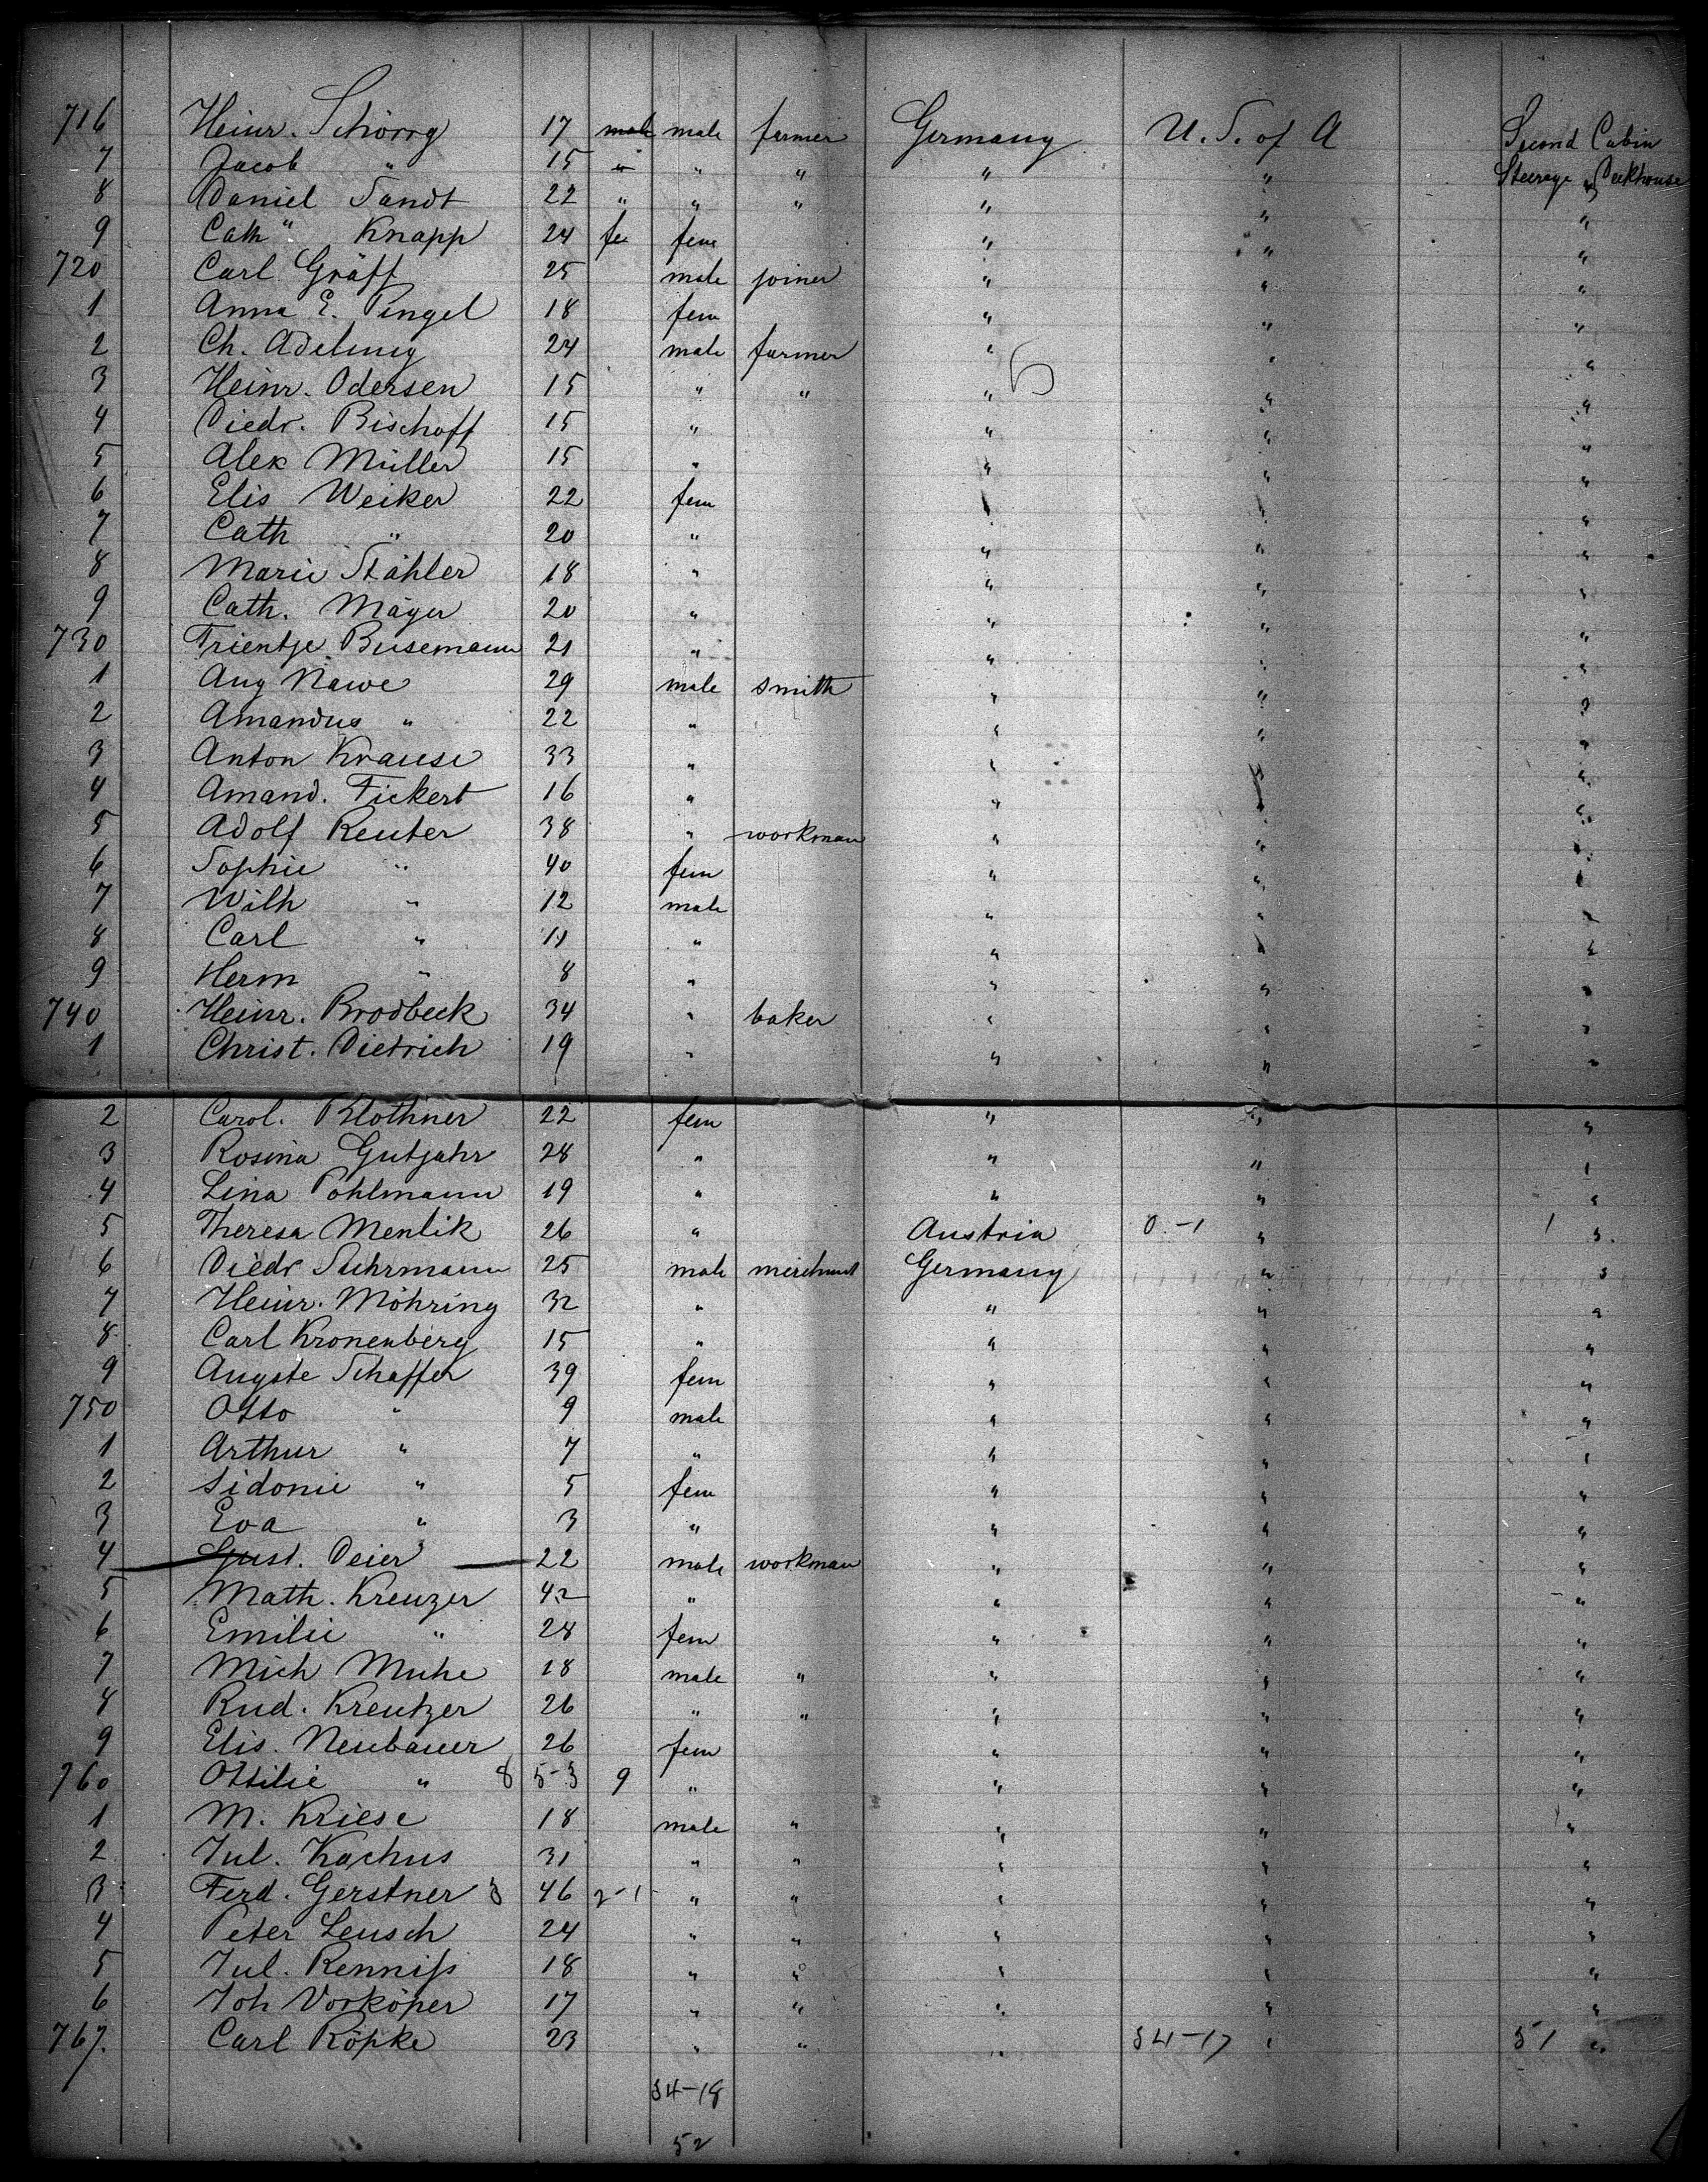 716 Heinr. Schörrg 17 male male farmer Germany U. S. of A Second Cabin
7 Jacob " 15 " " " " " Steerage
8 Daniel Sandt 22 " " " " " "
9 Cath " Knapp 24 fe fem " " "
720 Carl Gräff 25 male joiner " " "
1 Anna E. Pingel 18 fem " " "
2 Ch. Adelung 24 male farmer " " "
3 Heinr. Odersen 15 " " " 5 " "
4 Diedr. Bischoff 15 " " " "
5 Alex Müller 15 " " " "
6 Elis Weiker 22 fem " " "
7 Cath " 20 " " " "
8 Marie Stähler 18 " " " "
9 Cath. Mäyer 20 " " " "
730 Trientje Busemann 21 " " " "
1 Aug Nawe 29 male smith " " "
2 Amandus " 22 " " " "
3 Anton Krause 33 " " " "
4 Amand. Fickert 16 " " " "
5 Adolf Reuter 38 " workman " " "
6 Sophie " 40 fem " " "
7 Wilh " 12 male " " "
8 Carl " 11 " " " "
9 Herm " 8 " " " "
740 Heinr. Brodbeck 34 " baker " " "
1 Christ. Dietrich 19 " " " "
2 Carol. Klothner 22 fem " " "
3 Rosina Gutjahr 28 " " " "
4 Lina Pohlmann 19 " " " "
5 Theresa Menlik 26 " Austria 0-1 " 1 "
6 Diedr Suhrmann 25 male merchant Germany " "
7 Heinr. Möhring 32 " " " "
8 Carl Kronenberg 15 " " " "
9 Auguste Schaffer 39 fem " " "
750 Otto " 9 male " " "
1 Arthur " 7 " " " "
2 Sidonie " 5 fem " " "
3 Eva " 3 " " " "
4 Gust. Deier 22 male workman " " "
5 Math. Kreuzer 42 " " " "
6 Emilie " 28 fem " " "
7 Mich Muhe 18 male " " " "
8 Rud. Kreutzer 26 " " " " "
9 Elis. Neubauer 26 fem " " "
760 Ottilie " 8 5-3 9 " " " "
1 M. Kriese 18 male " " " "
2 Jul. Kachus 31 " " " " "
3 Ferd. Gerstner 3 46 2-1 " " " " "
4 Peter Leusch 24 " " " " "
5 Jul. Renniss 18 " " " " "
6 Joh Vorköper 17 " " " " "
767. Carl Röpke 23 " " " 34-17 " 51 "
34-18
52